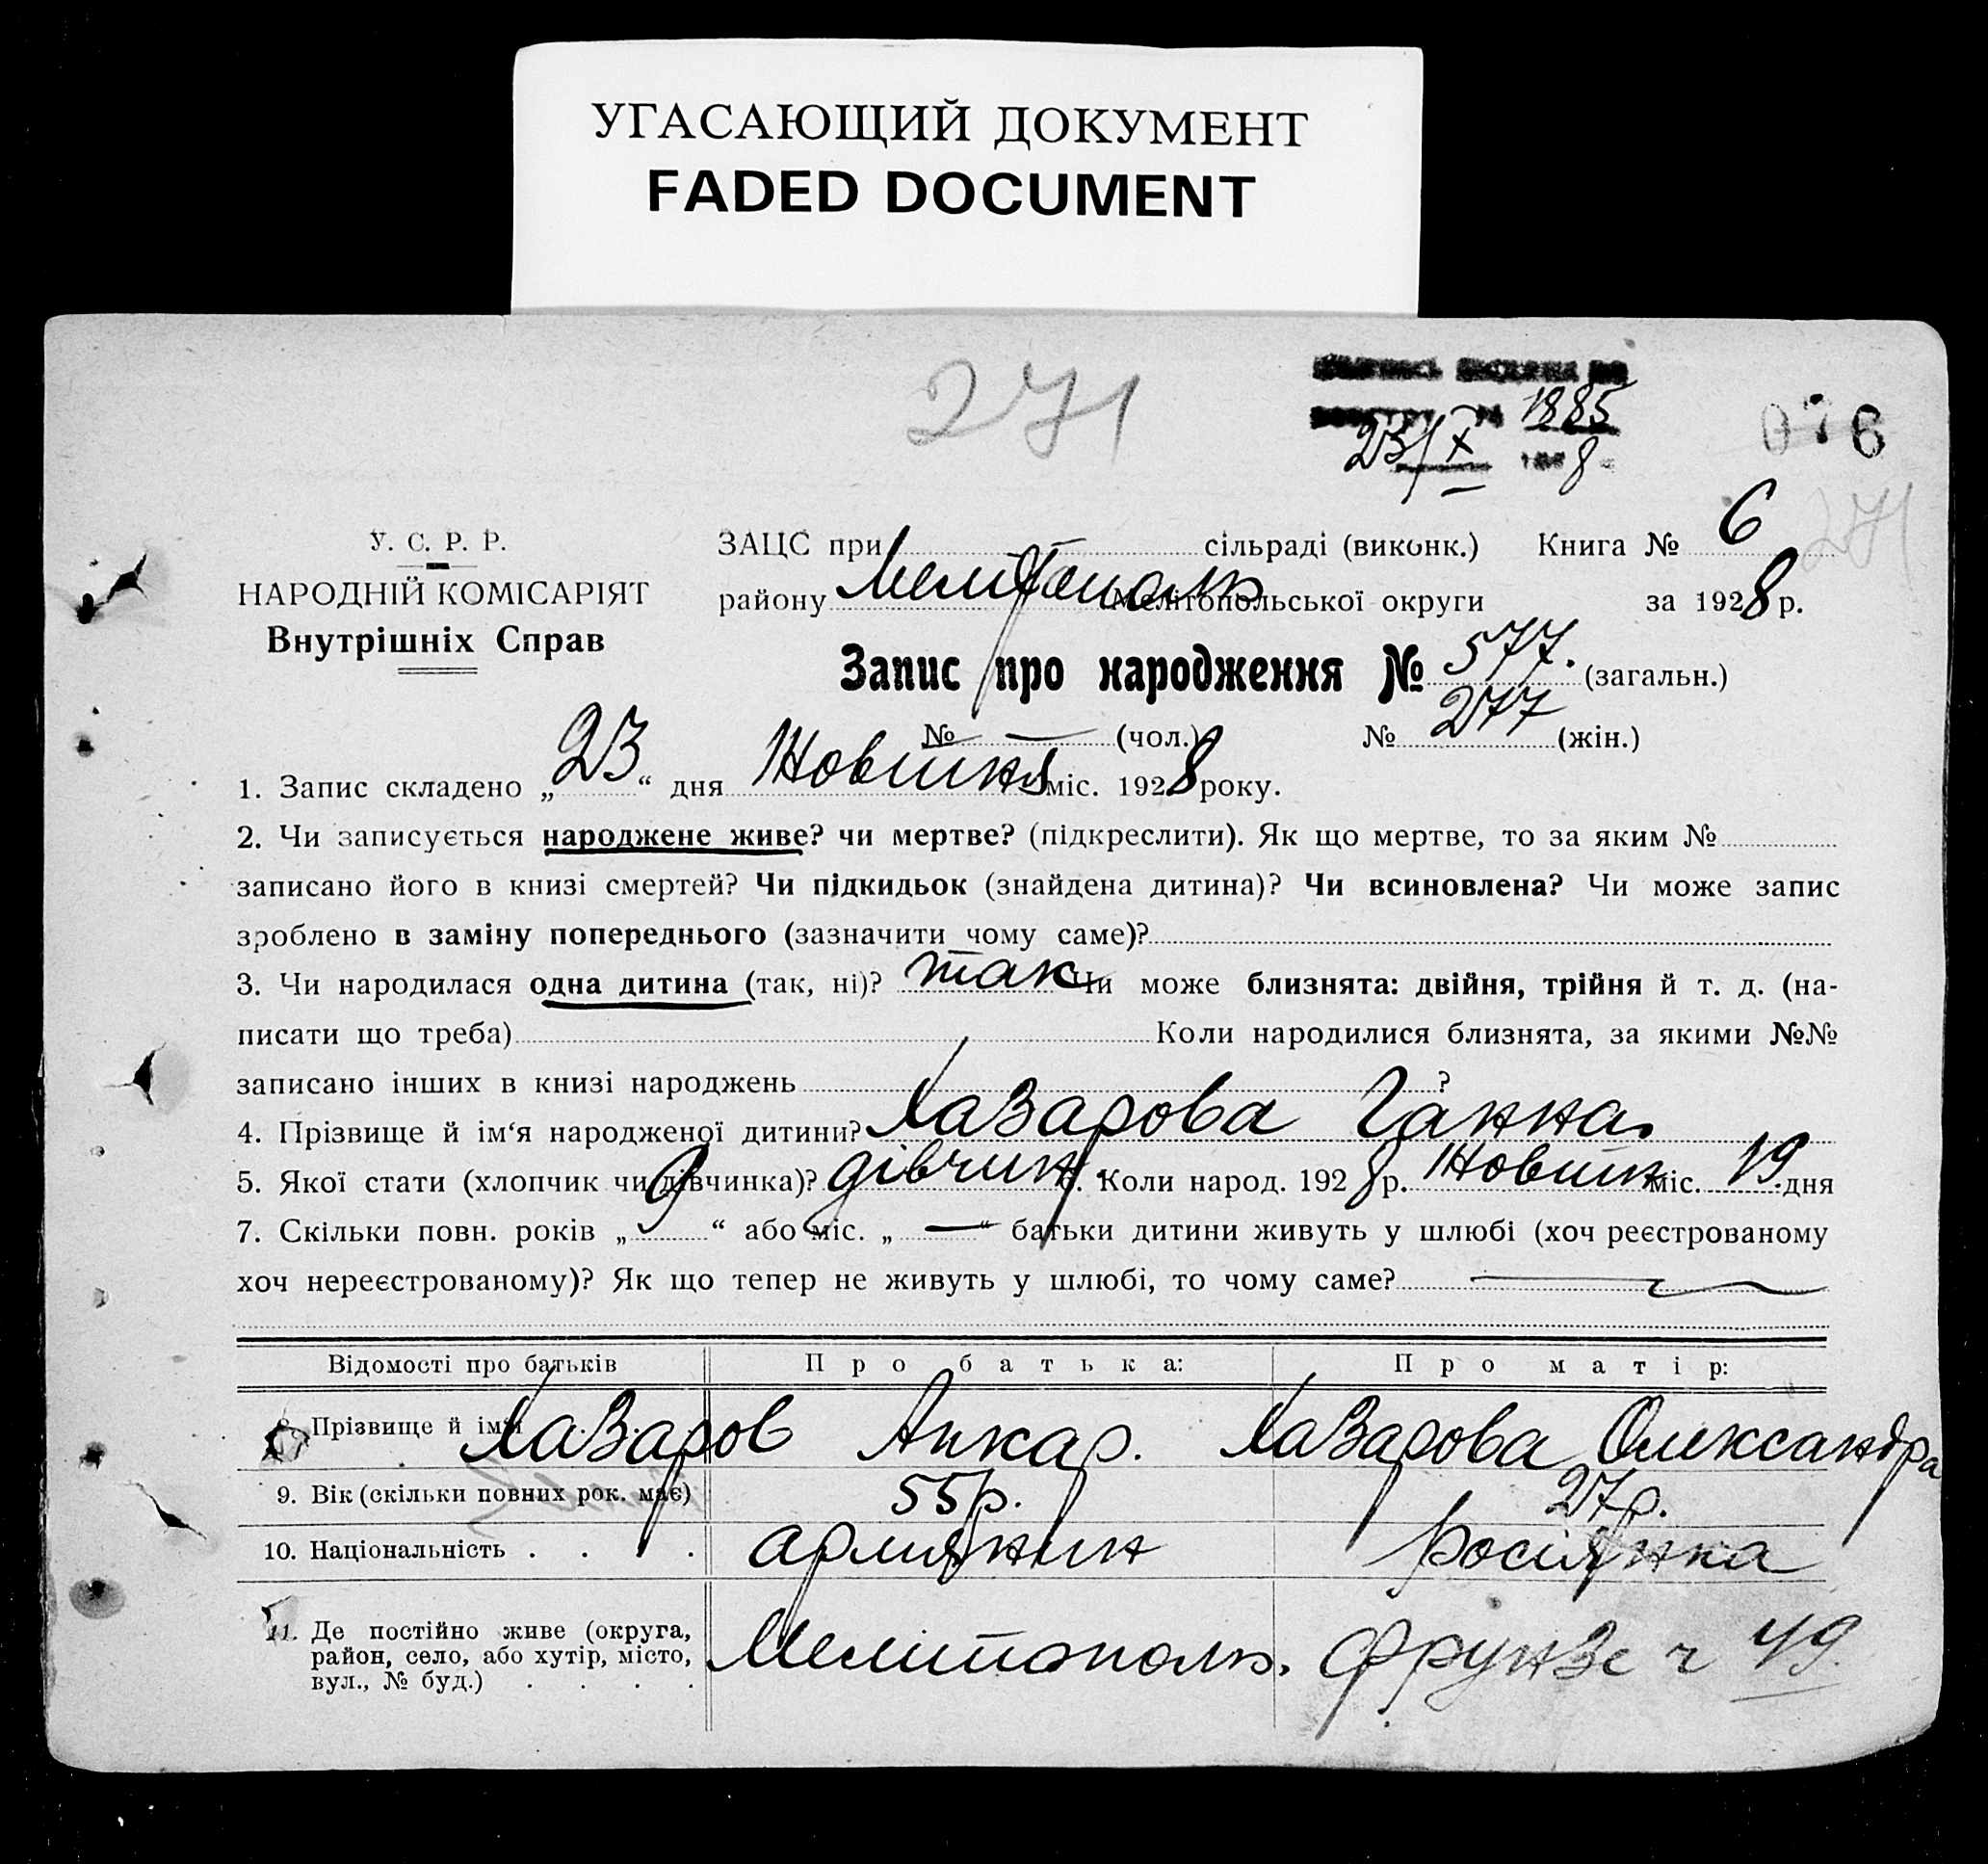 УГАСАЮЩИЙ ДОКУМЕНТ
FADED DOCUMENT
271
1885
23/X 8
076
271
У. С. Р. Р.
НАРОДНІЙ КОМІСАРІЯТ
Внутрішніх Справ
ЗАЦС при сільраді (виконк.) Книга № 6
району Мелітополь Мелітопольської округи за 1928 р.
Запис про народження № 577. (загальн.)
№ — (чол.) № 277 (жін.)
1. Запис складено „23“ дня Жовтня міс. 1928 року.
2. Чи записується народжене живе? чи мертве? (підкреслити). Як що мертве, то за яким №
записано його в книзі смертей? Чи підкидьок (знайдена дитина)? Чи всиновлена? Чи може запис
зроблено в заміну попереднього (зазначити чому саме)?
3. Чи народилася одна дитина (так, ні)? так Чи може близнята: двійня, трійня й т. д. (на-
писати що треба) Коли народилися близнята, за якими №№
записано інших в книзі народжень ?
4. Прізвище й ім‘я народженої дитини? Лазарова Ганна
5. Якої стати (хлопчик чи дівчинка)? дівчин. 6. Коли народ. 1928 р. Жовтн міс. 19 дня
7. Скільки повн. років „9“ або міс. „—“ батьки дитини живуть у шлюбі (хоч реєстрованому
хоч нереєстрованому)? Як що тепер не живуть у шлюбі, то чому саме? —
Відомості про батьків Про батька: Про матір:
8. Прізвище й ім‘я Лазаров Апкар. Лазарова Олександра
9. Вік (скільки повних рок. має) 55 р. 27 р.
10. Національність . . . . армянин росіянка
11. Де постійно живе (округа,
район, село, або хутір, місто,
вул., № буд.) . . . . Мелітополь. Фрунзе ч 49.